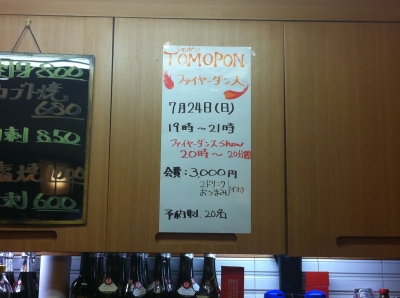 トモポン
TOMOPON
ファイヤーダンス
7月24日(日)
19時〜21時
ファイヤーダンスshow
20時〜20分間
会費:3,000円
2ドリンク
おつまみ付き
予約制. 20名
800
カブト焼
680
刺 850
塩焼
刺 600